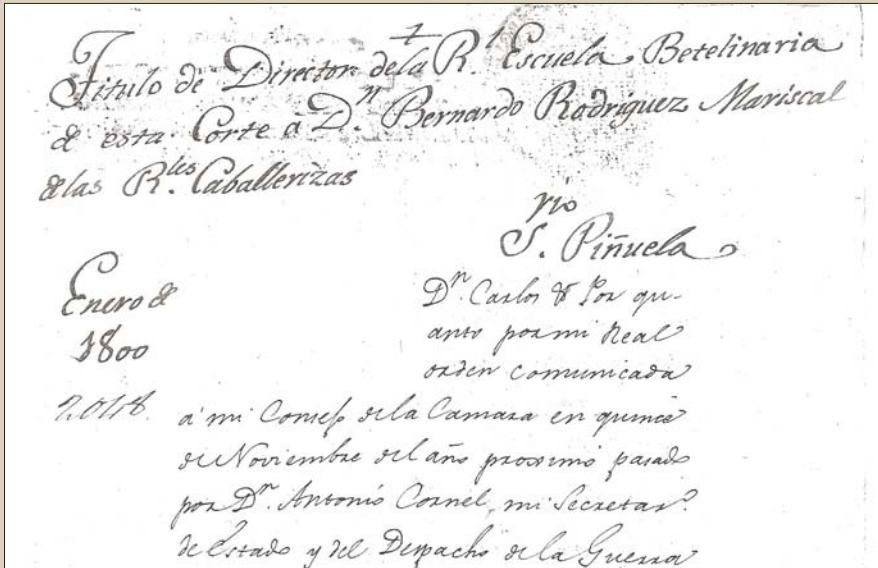 Titulo de Director dela R.l Escuela Betelinaria
de esta Corte á D.n Bernardo Rodriguez Mariscal
de las R.les Caballerizas
rio
S. Piñuela
Enero de
1800
D.n Carlos &a Por qu-
anto por mi Real
orden comunicada
á mi Consejo de la Camara en quince
de Noviembre del año proximo pasado
por D.n Antonio Cornel, mi Secretar.o
de Estado y del Despacho de la Guerra